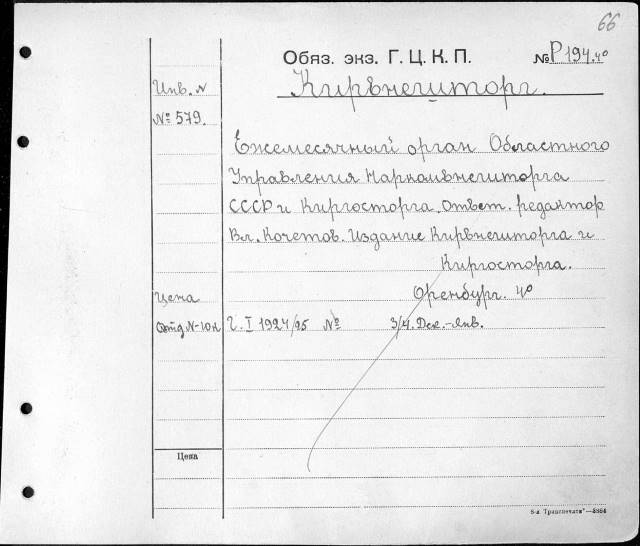 66
Обяз. экз. Г. Ц. К. П. № Р194.4º
Кирвнешторг.
Инв. N
№ 579.
Ежемесячный орган Областного
Управления Наркомвнешторга
СССР и Киргосторга. Ответ. редактор
Вл. Кочетов. Издание Кирвнешторга и
Киргосторга.
Оренбург. 4º
Цена
Отд N-10к Г. I 1924/25 № 3/4. Дек.-Янв.
Цена
8-я „Транспечати"—5364